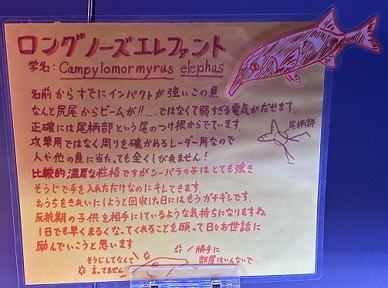 ロングノーズエレファント
学名:Campylomormyrus elephas
名前からすでにインパクトが強いこの魚
なんと尻尾からビームが!!…ではなくて弱すぎる電気がだせます。
正確には尾柄部という尾のつけ根からでています。
尾柄部
攻撃用ではなく周りを確かめるレーダー用なので
人や他の魚に当たっても全くしびれません!
比較的温厚な性格ですがシーパラの子はとても強き
そうじで手を入れただけなのにキレてきます。
おうちをきれいにしようと回収した日にはもうガチギレです。
反抗期の子供を相手にしているような気持ちになりますね
1日でも早くまるくなってくれることを願って日々お世話に
励んでいこうと思います
そうじしてなんて
言ってません
勝手に
部屋はいんないで